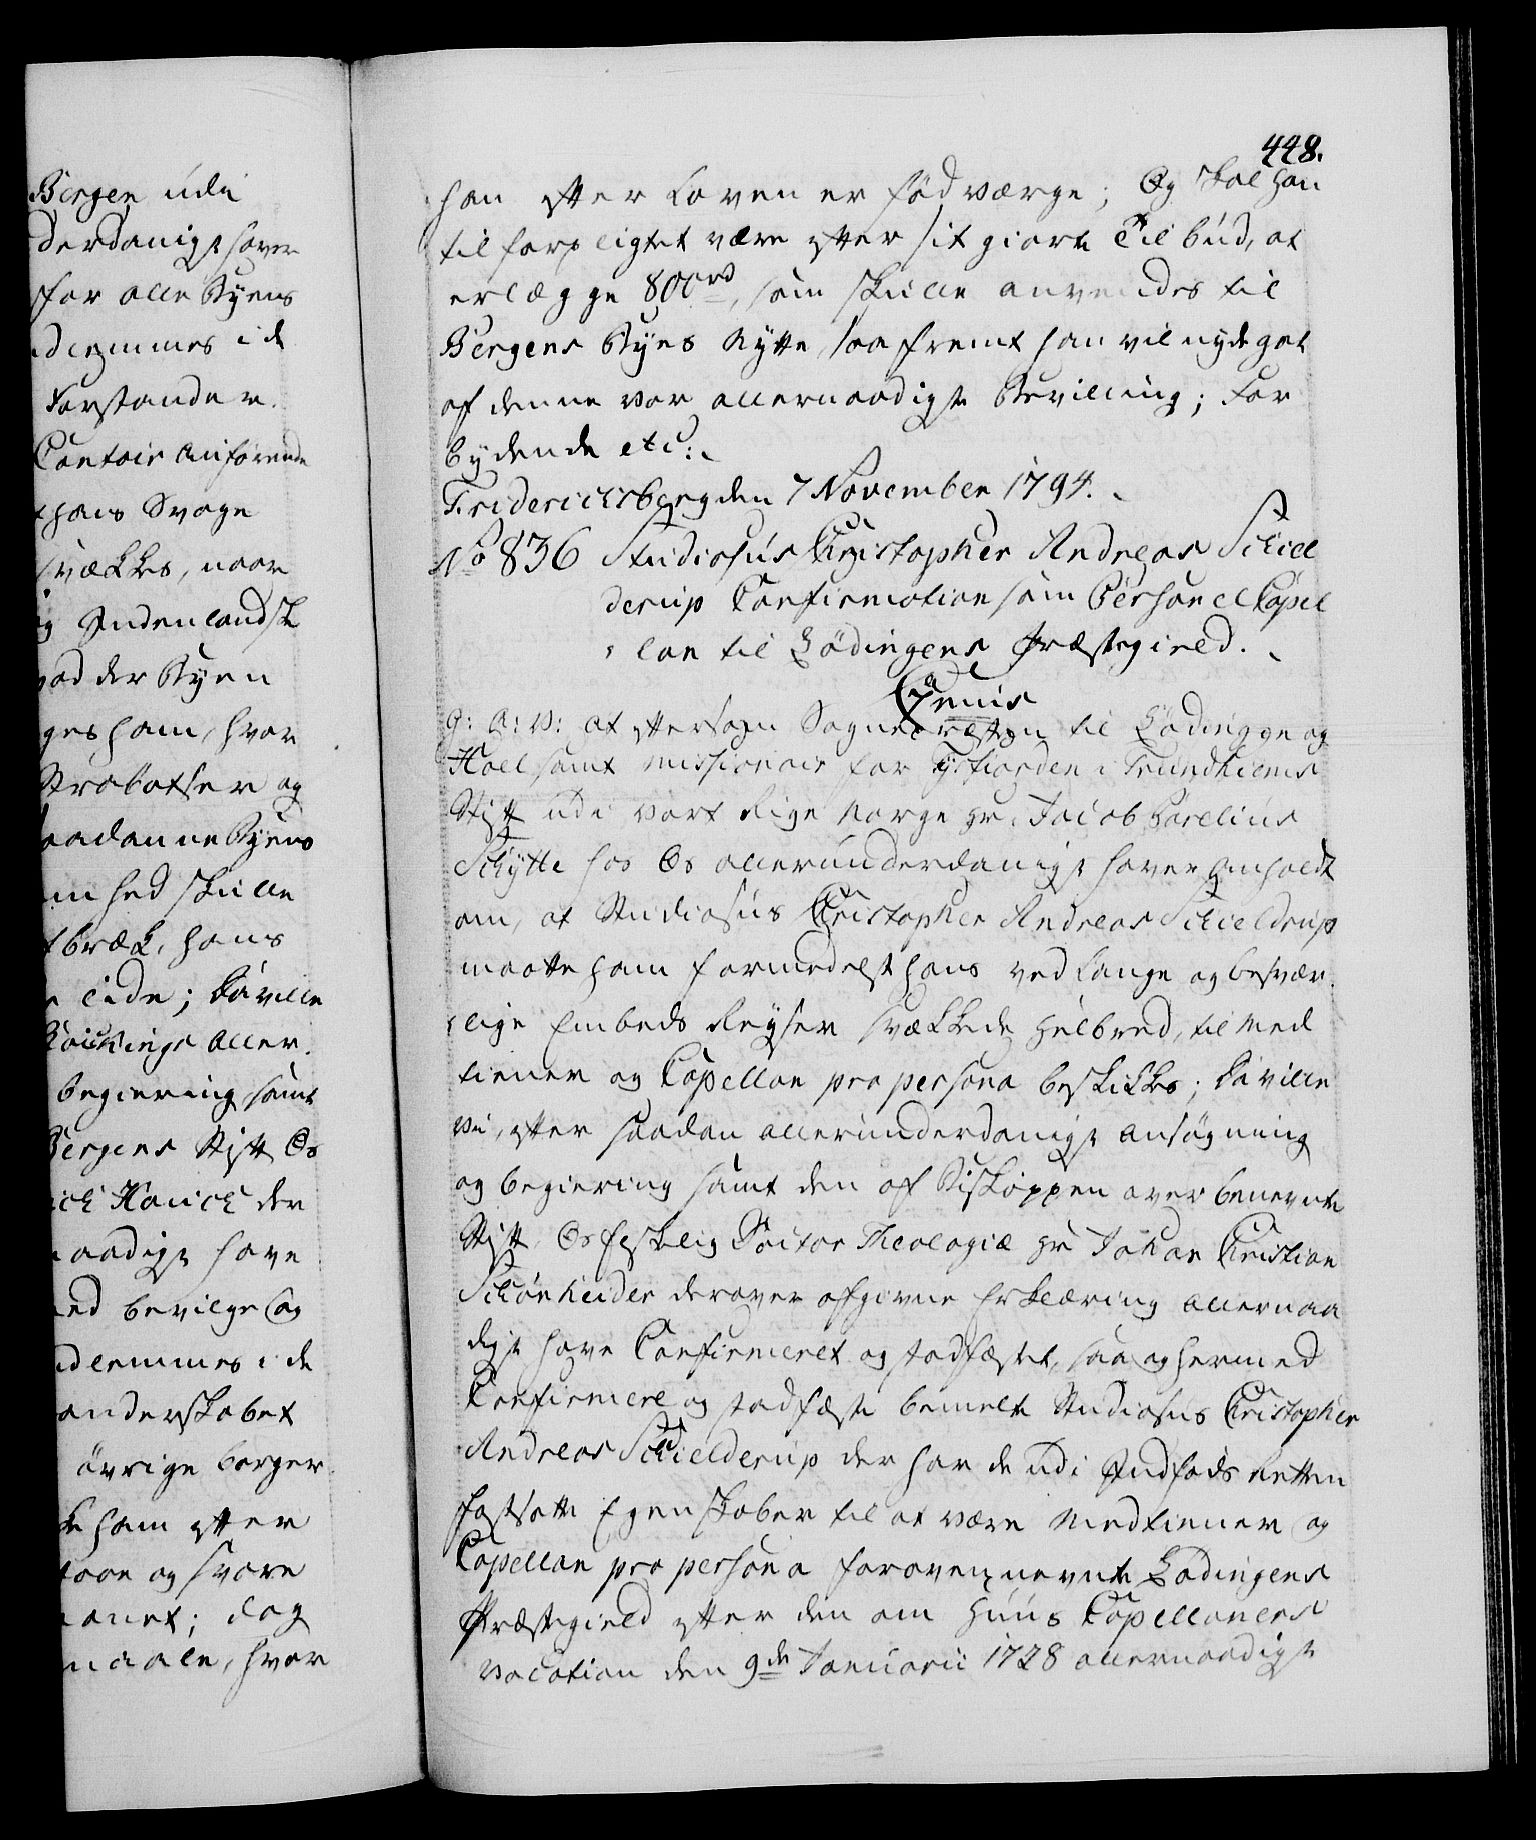 Bergen udi
derdanigst haver
for alle Byens
idlemmes i de
Forstandere.
Contoir anförende
t hans Svage
svækkes, naar
ig Indenlandsk
vad der Byen
ges ham, hvor
Strabatser og
saadanne Byens
mhed skulle
tbræk, hans
e lide; Da ville
Rükings aller
begiering samt
Bergens Stift Os
ich Hauch der
naadigst have
ed bevilge og
idlemmes i de
anderskabet
övrige borger
ke ham efter
taae og svare
anet; dog
maale, hvor
448.
han efter Loven er född værge; Og skal han
tilforpligtet være efter sit giorte Tilbud, at
erlægge 800 rd, som skulle anvendes til
Bergens Byes Nytte, saafremt han vil nyde got
af denne vor allernaadigste Bevilling; For
bydende etc:
Friderichsberg den 7 November 1794.
No 836 Studiosus Christopher Andreas Schiel
derup Confirmation som Personel Capel
lan til Lödingens Præstegield.
Gratis
G: A: V: at eftersom Sognepræsten til Lödingen og
Hoel samt Missionair for Tysfiorden i Trundhiems
Stift udi vort Rige Norge Hr. Jacob Parelius
Schytte hos Os allerunderdanigst haver anholdt
om, at Studiosus Christopher Andreas Schieldrup
maatte ham formedelst hans ved lange og besvær
lige Embeds Reyser svækkede Helbred, til Med
tiener og Capellan pro persona beskikkes; Da ville
Vi, efter saadan allerunderdanigst Ansögning
og begiering samt den af Biskoppen over benevnte
Stift Os Elskelig Doctor Theologiæ Hr Johan Christian
Schönheider derover afgivne Erklæring allernaa
digst have Confirmeret og stadfæstet, saa og hermed
Confirmere og stadfæste bemelte Studiosus Christopher
Andreas Schielderup der har de udi Indföds Retten
fastsatte Egenskaber til at være Medtiener og
Capellan pro persona for ovennevnte Lödingens
Præstegield efter den om Huus Capellaners
vocation den 9de Januarii 1728 allernaadigst